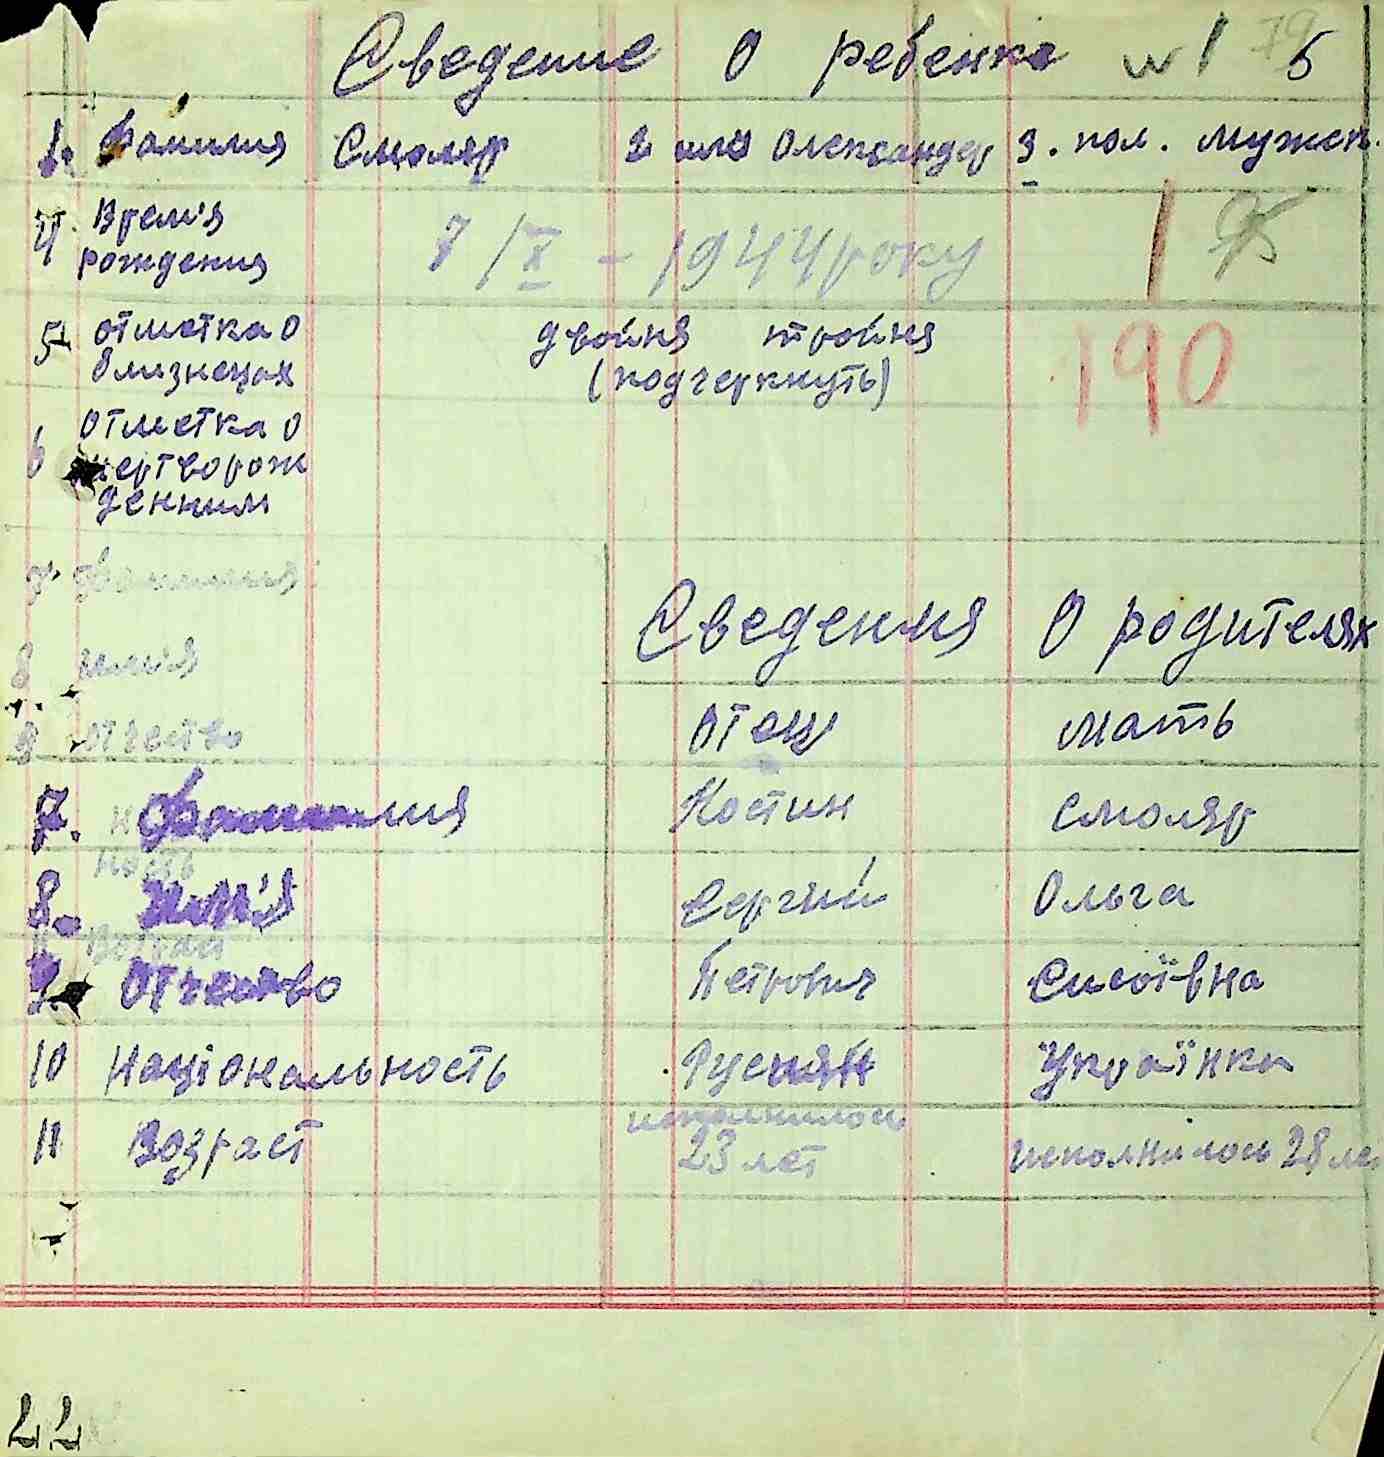 Сведение о ребенке № 1 б
1. Фамилия Смоляр 2 имя Олександер 3. пол. мужск.
4. Врем'я
рождения 7/X - 1944 року 1
5. отметка о двойня тройня
близнецах (подчеркнуть) 190
6 отметка о
мертворож
денним
7. Фамилия
Сведения о родителях
8 имія
9 отчество Отец Мать
7. Фамилия Костин Смоляр
ность
8. Им'я Сергий Ольга
Возраст
9. Отчество Петрович Сисоївна
10 Національность Руский Українка
исполнилось
11 Возраст 23 лет исполнилось 28 ле
22